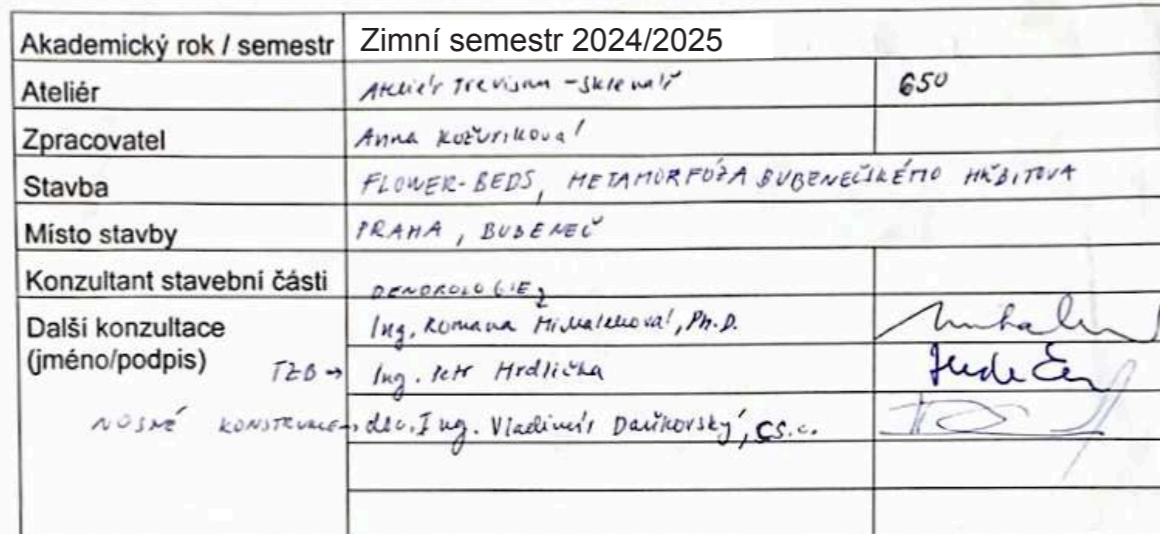 Akademický rok / semestr Zimní semestr 2024/2025
Ateliér Ateliér Trevisan - Sklenář 650
Zpracovatel Anna Kožuriková
Stavba FLOWER-BEDS, METAMORFÓZA BUBENEČSKÉHO HŘBITOVA
Místo stavby PRAHA, BUBENEČ
Konzultant stavební části
DENDROLOGIE
Další konzultace Ing. Romana Michalková, Ph.D.
(jméno/podpis) TZB → Ing. Petr Hrdlička
NOSNÉ KONSTRUKCE → doc. Ing. Vladimír Daňkovský, CS.c.